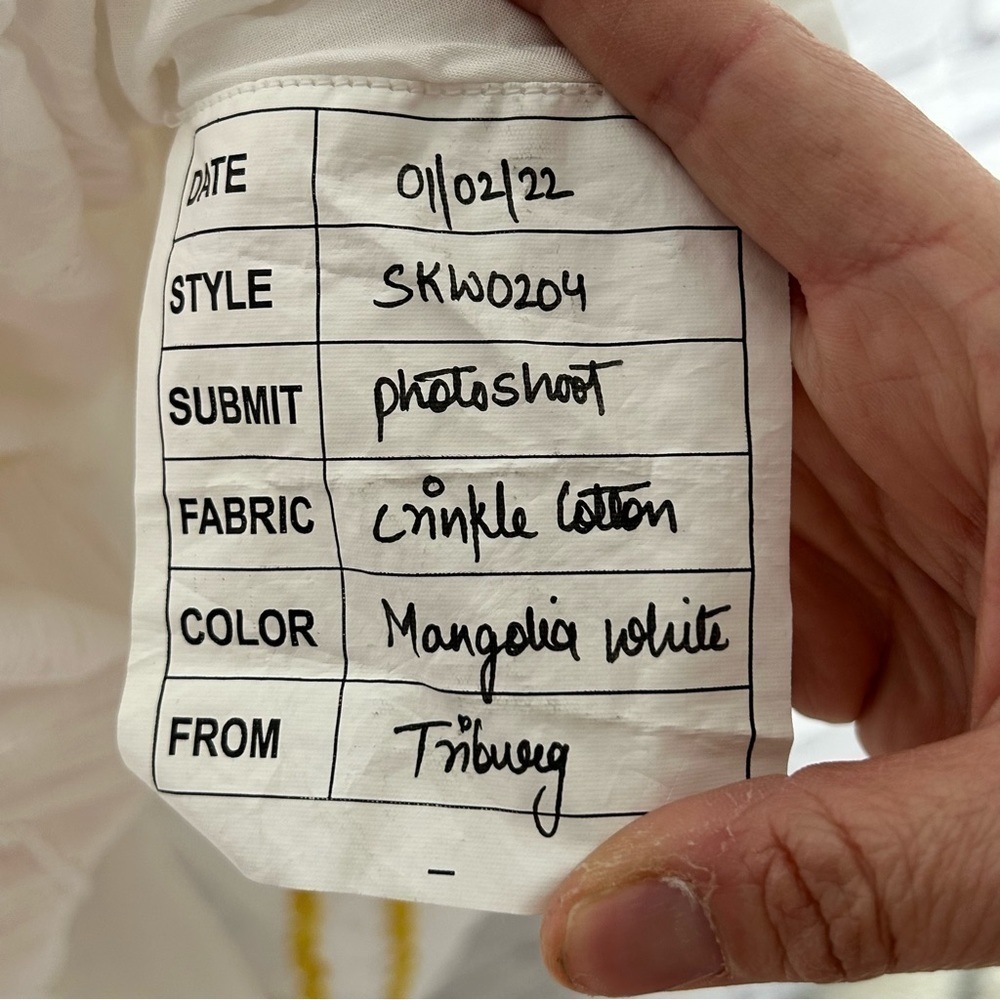 DATE 01/02/22
STYLE SKW0204
SUBMIT photoshoot
FABRIC crinkle Cotton
COLOR Mangolia white
FROM Triburg